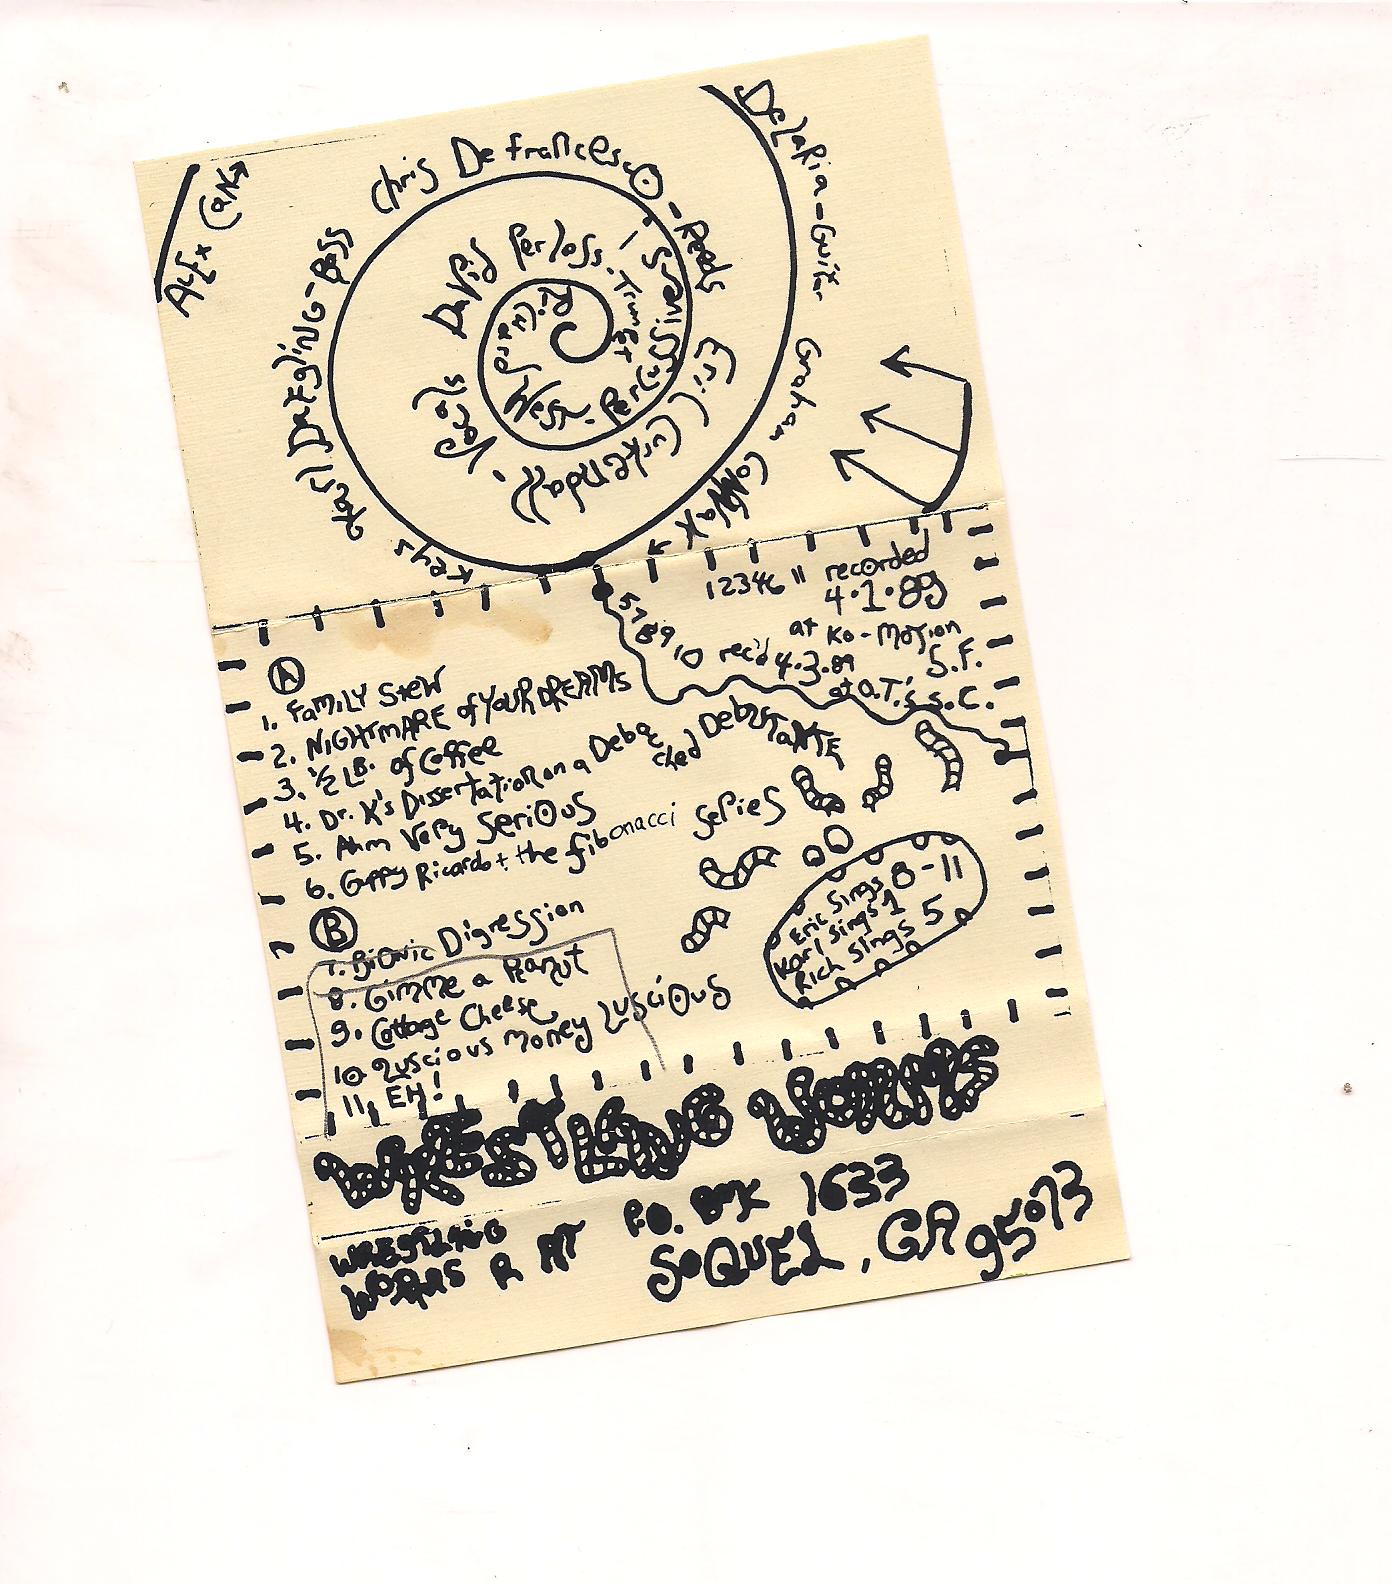 ALEX CAN
DeLaRia - Guitar
Graham Connax
Chris DeFrancesco - Reeds
Eric Curkendall.
Vocals
Karl DaEgling - Bass
Keys
David Perloss. Trumpet
Richard Wess.
12346 11 recorded
4.1.89
at Ko-Motion
S.F.
57
89
10 rec'd 4.3.89
at O.T.'s S.C.
A
1. FaMiLY SteW
2. NIGHTMARE of YOUR DREAMS
3. 1/2 LB. of Coffee
4. Dr. K's Dissertation on a Debauched Debutante
5. Ahm Very Serious
6. Guppy Ricardo + the fibonacci Series
B
7. Bionic Digression
8. Gimme a Peanut
9. Cottage Cheese
10 Luscious Money Luscious
11. EH!
Eric Sings 8-11
Karl Sings 1
Rich Sings 5
WRESTLING WORMS
WRESTLING
WORMS R AT
P.O. BOX 1633
SOQUEL, CA 95073